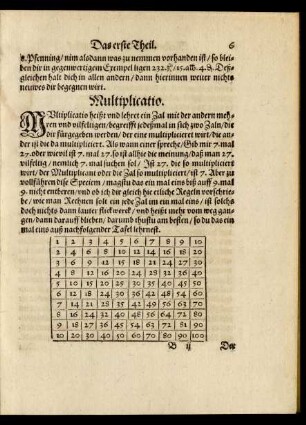 Das erste Theil. 6
8. Pfenning/ nim alsdann was zu nemmen vorhanden ist / so blei-
ben dir in gegenwertigem Exempel ligen 232. fl/ 15. alb. 4. ₰. Deß-
gleichen halt dich in allen andern / dann hierinnen weiter nichts
neuwes dir begegnen wirt.
Multiplicatio.
MVltiplicatio heißt vnd lehret ein Zal mit der andern meh-
ren vnd vilfeltigen/ begreifft jedesmal in sich zwo Zaln/ die
dir fürgegeben werden / der eine multiplicieret wirt/ die an-
der ist die da multipliciert. Als wann einer spreche/ Gib mir 7. mal
27. oder wieuil ist 7. mal 27. so ist allhie die meinung/ daß man 27.
vilfeltig / nemlich 7. mal suchen sol / Ist 27. die so multipliciert
wirt / der Multiplicant oder die Zal so multiplicieret / ist 7. Aber zu
vollführen dise Speciem / magstu das ein mal eins biß auff 9. mal
9. nicht entberen / vnd ob ich dir gleich hie etliche Regeln vorschrie-
be / wie man Rechnen solt ein jede Zal im ein mal eins / ist solchs
doch nichts dann lauter flickwerck / vnd heißt mehr vom weg gan-
gen / dann darauff blieben / darumb thustu am besten / so du das ein
mal eins auß nachfolgender Tafel lehrnest.
1 2 3 4 5 6 7 8 9 10
2 4 6 8 10 12 14 16 18 20
3 6 9 12 15 18 21 24 27 30
4 8 12 16 20 24 28 32 36 40
5 10 15 20 25 30 35 40 45 50
6 12 18 24 30 36 42 48 54 60
7 14 21 28 35 42 49 56 63 70
8 16 24 32 40 48 56 64 72 80
9 18 27 36 45 54 63 72 81 90
10 20 30 40 50 60 70 80 90 100
B ij Der